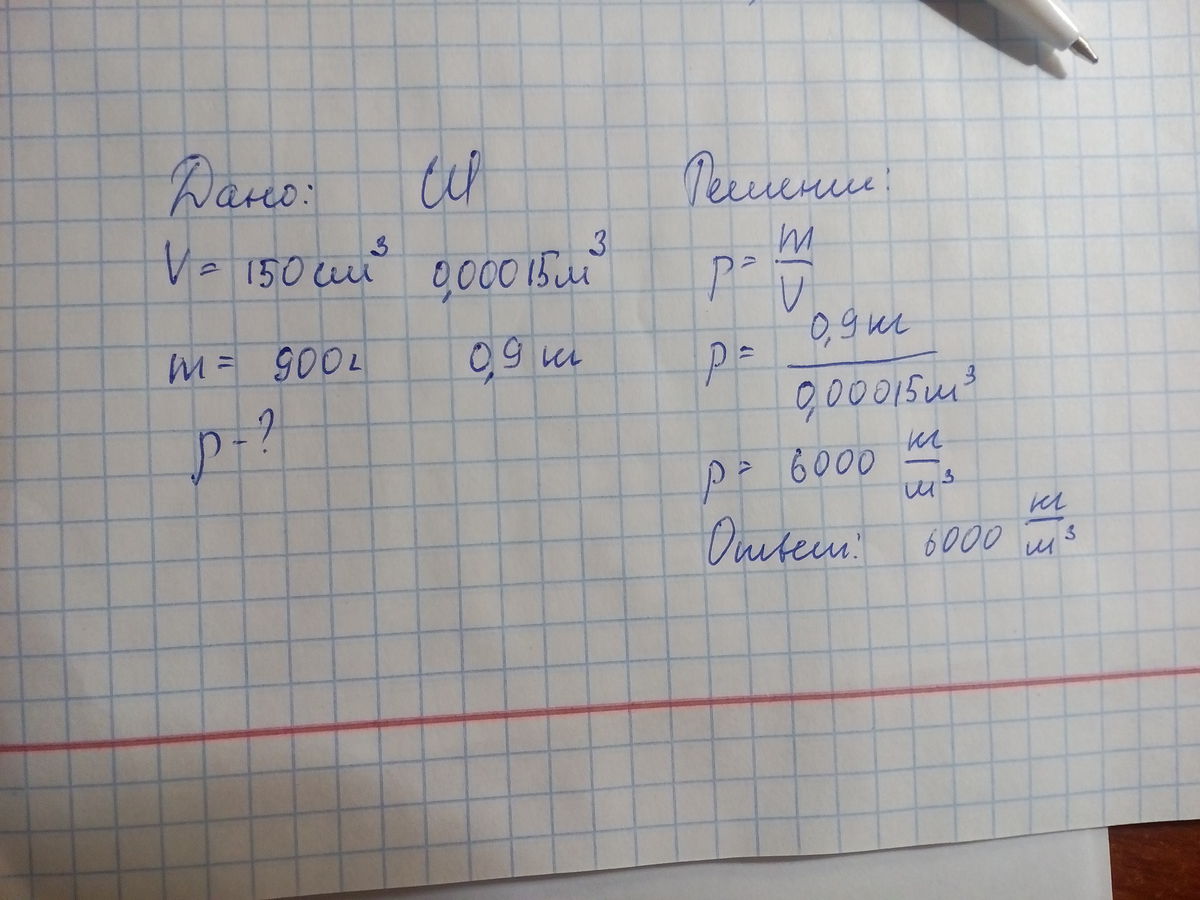 Дано: СИ Решение:
V = 150 см³ 0,00015 м³ p = m/V
m = 900 г 0,9 кг p = 0,9 кг/0,00015 м³
p - ? p = 6000 кг/м³
Ответ: 6000 кг/м³